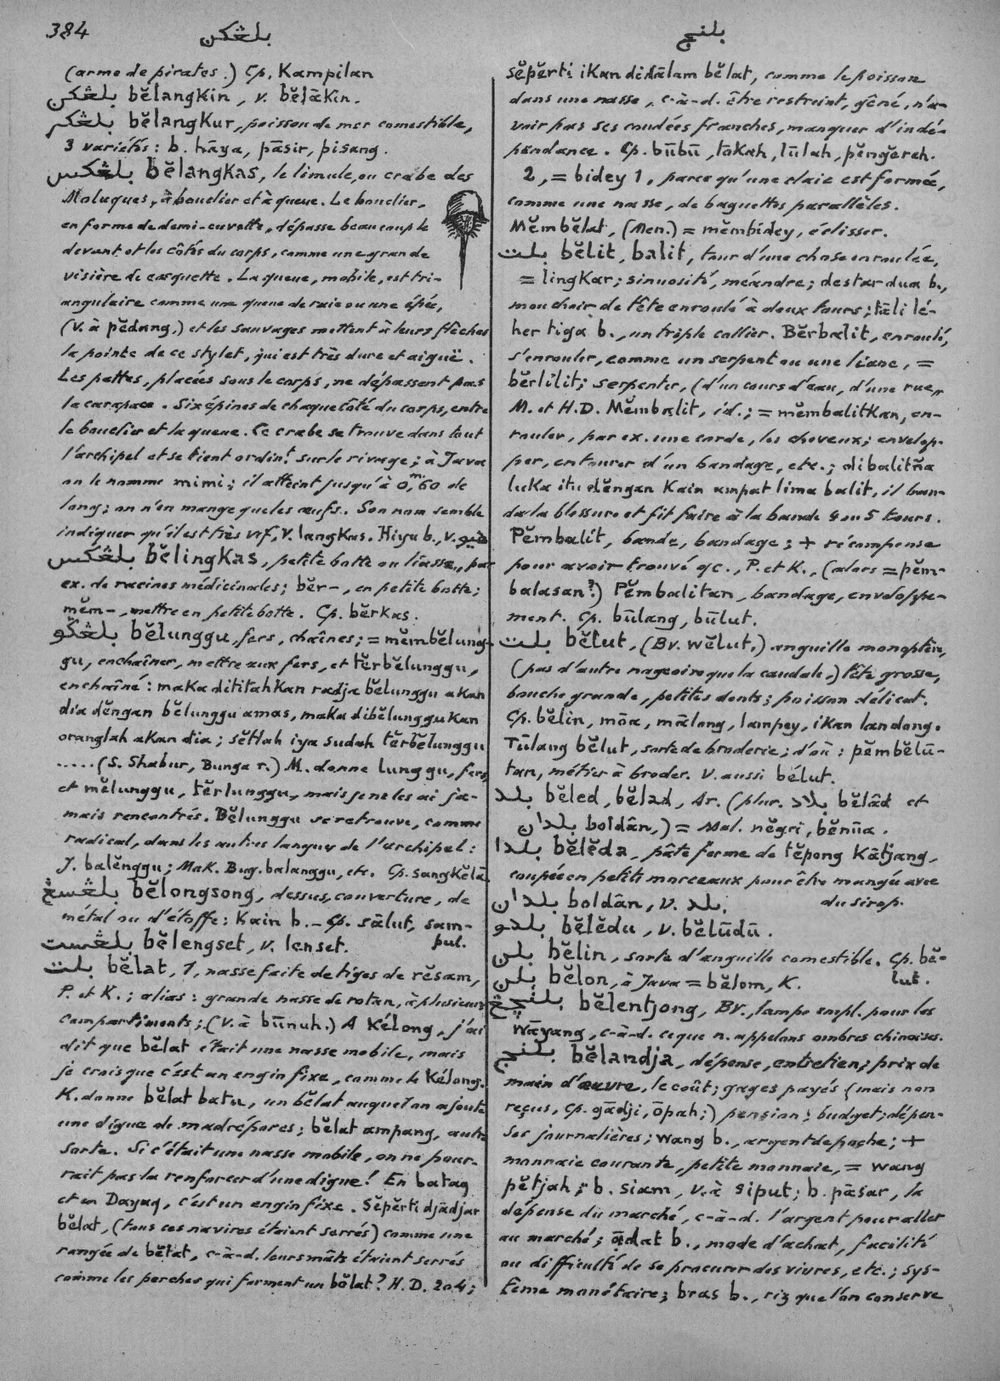 384 بلڠكن
بلنج
(arme de pirates.) Cp. Kampilan
بلڠكن bĕlangkin, v. bĕlākin.
بلڠكر bĕlangkur, poisson de mer comestible,
3 variétés: b. hāya, pāsir, pisang.
بلڠكس bĕlangkas, le limule, ou crabe des
Moluques, à bouclier et à queue. Le bouclier,
en forme de demi-cuvette, dépasse beaucoup le
devant et les côtés du corps, comme une grande
visière de casquette. La queue, mobile, est tri-
angulaire comme une queue de raie ou une épée,
(v. à pĕdang,) et les sauvages mettent à leurs flèches
la pointe de ce stylet, qui est très dure et aiguë.
Les pattes, placées sous le corps, ne dépassent pas
la carapace. Six épines de chaque côté du corps, entre
le bouclier et la queue. Ce crabe se trouve dans tout
l'archipel et se tient ordin.t sur le rivage; à Java
on le nomme mimi; il atteint jusqu'à 0,m60 de
long; on n'en mange que les œufs. Son nom semble
indiquer qu'il est très vif, V. langkas. Hiyu b., v. هيو
بلڠكس bĕlingkas, petite botte ou liasse, par
ex. de racines médicinales; bĕr-, en petite botte;
mĕm-, mettre en petite botte. Cp. bĕrkas.
بلڠڬو bĕlunggu, fers, chaînes; = mĕmbĕlung-
gu, enchaîner, mettre aux fers, et tĕrbĕlunggu,
enchaîné: maka dititahkan radja bĕlunggu akan
dia dĕngan bĕlunggu amas, maka dibĕlunggukan
oranglah akan dia; sĕtlah iya sudah tĕrbĕlunggu
..... (S. Shabur, Bunga r.) M. donne lunggu, fers,
et mĕlunggu, tĕrlunggu, mais je ne les ai ja-
mais rencontrés. Bĕlunggu se retrouve, comme
radical, dans les autres langues de l'archipel:
J. balĕnggu; Mak. Bug. balanggu, etc. Cp. sangkĕlā
بلڠسڠ bĕlongsong, dessus, couverture, de
métal ou d'étoffe: Kain b. _ Cp. sālut, sam-
pul.
بلڠست bĕlengset, v. lenset.
بلت bĕlat, 1, nasse faite de tiges de rĕsam,
P. et K.; alias: grande nasse de rotan, à plusieurs
compartiments; (v. à būnuh.) A Kélong, j'ai
dit que bĕlat était une nasse mobile, mais
je crois que c'est un engin fixe, comme le Kélong.
K. donne bĕlat batu, un bĕlat auquel on ajoute
une digue de madrépores; bĕlat ampang, autre
sorte. Si c'était une nasse mobile, on ne pour-
rait pas la renforcer d'une digue! En batag
et en Dayaq, c'est un engin fixe. Sĕpĕrti djādjar
bĕlat, (tous ces navires étaient serrés) comme une
rangée de bĕlat, c-à-d. leurs mâts étaient serrés
comme les perches qui forment un bĕlat? H.D. 204;
sĕpĕrti ikan didālam bĕlat, comme le poisson
dans une nasse, c-à-d. être restreint, gêné, n'a-
voir pas ses coudées franches, manquer d'indé-
pendance. Cp. būbū, tākah, lūlah, pĕngĕrah.
2, = bidey 1, parce qu'une claie est formée,
comme une nasse, de baguettes parallèles.
Mĕmbĕlat, (Men.) = mĕmbidey, éclisser.
بلت bĕlit, balit, tour d'une chose enroulée,
= lingkar; sinuosité, méandre; destar dua b.,
mouchoir de tête enroulé à deux tours; tāli lé-
her tiga b., un triple collier. Bĕrbalit, enroulé,
s'enrouler, comme un serpent ou une liane, =
bĕrlilit; serpenter, (d'un cours d'eau, d'une rue,,
M. et H.D. Mĕmbalit, id.; = mĕmbalitkan, en-
rouler, par ex. une corde, les cheveux; envelop-
per, entourer d'un bandage, etc.; dibalitña
luka itu dĕngan kain ampat lima balit, il ban-
da la blessure et fit faire à la bande 4 ou 5 tours.
Pĕmbalit, bande, bandage; + récompense
pour avoir trouvé qc., P. et K., (alors = pĕm-
balasan?) Pĕmbalitan, bandage, enveloppe-
ment. Cp. būlang, būlut.
بلت bĕlut, (Bv. wĕlut,) anguille monoptère,
(pas d'autre nageoire que la caudale,) tête grosse,
bouche grande, petites dents; poisson délicat.
Cp. bĕlin, mōa, mālang, lampey, ikan landong.
Tūlang bĕlut, sorte de broderie; d'où: pĕmbĕlū-
tan, métier à broder. V. aussi bélut.
بلد bĕled, bĕlad, Ar. (plur. بلاد bĕlâd et
بلدان boldân,) = Mal. nĕgri, bĕnūa.
بلدا bĕlĕda, pâte ferme de tĕpong Kātjang,
coupée en petits morceaux pour être mangée avec
du sirop.
بلدان boldân, v. بلد.
بلدو bĕlĕdu, v. bĕlūdū.
بلن bĕlin, sorte d'anguille comestible. Cp. bĕ-
lut.
بلن bĕlon, à Java = bĕlom, K.
بلنچڠ bĕlentjong, BV., lampe empl. pour les
Wāyang, c-à-d. ce que n. appelons ombres chinoises.
بلنج bĕlandja, dépense, entretien; prix de
main d'œuvre, le coût; gages payés (mais non
reçus, cp. gādji, ōpah;) pension; budget; dépen-
ses journalières; wang b., argent de poche; +
monnaie courante, petite monnaie, = wang
pĕtjah; b. siam, v. à siput; b. pāsar, la
dépense du marché, c-à-d. l'argent pour aller
au marché; ādat b., mode d'achat, facilité
ou difficulté de se procurer des vivres, etc.; sys-
tème monétaire; bras b., riz que l'on conserve